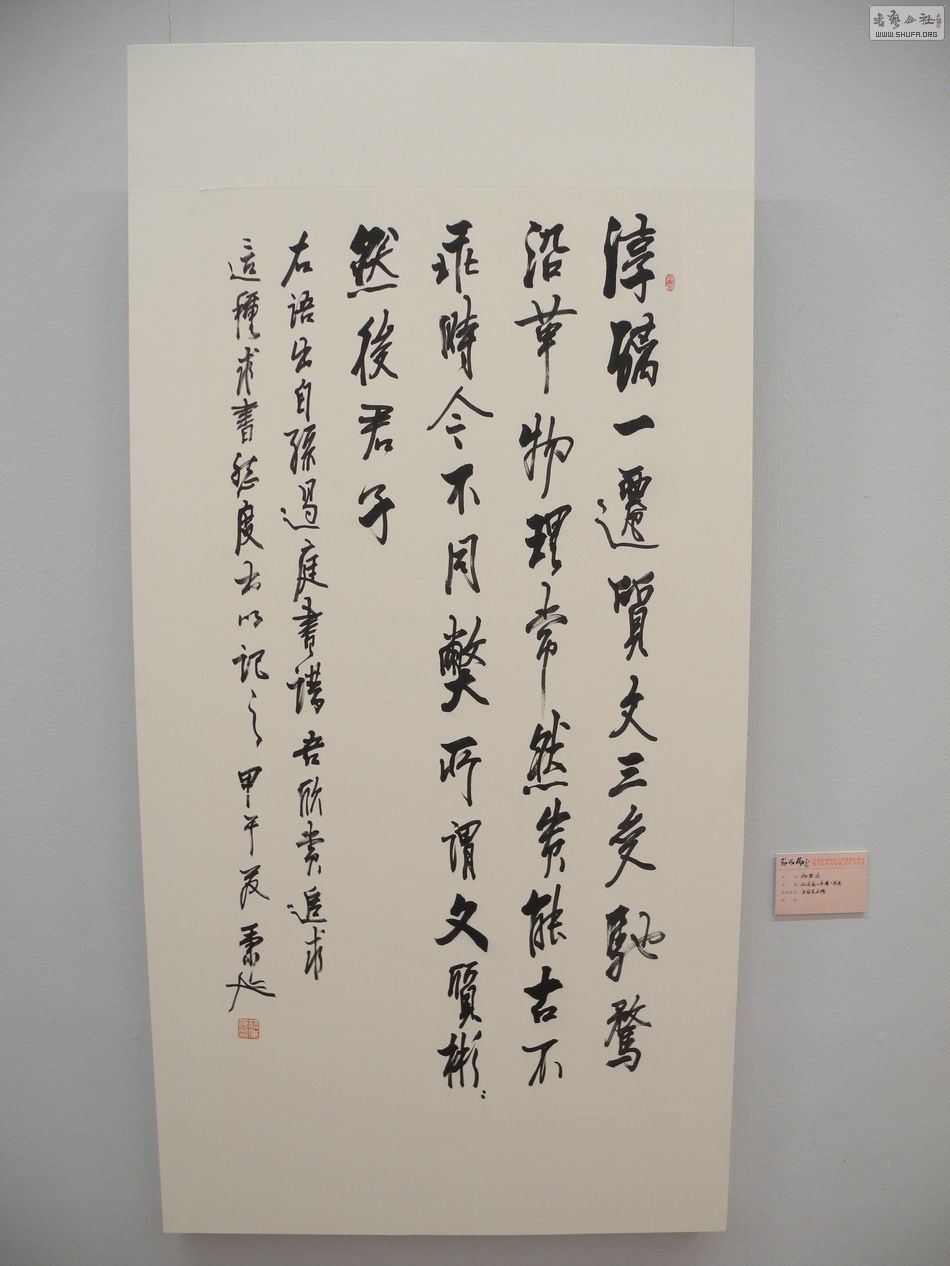 書藝公社
WWW.SHUFA.ORG
淳醨一遷質文三变馳騖
沿革物理常然貴能古不
乖時今不同弊所謂文質彬〻
然後君子
右語出自孫過庭書譜吾欣賞追求
這種求書態度書以記之甲午夏